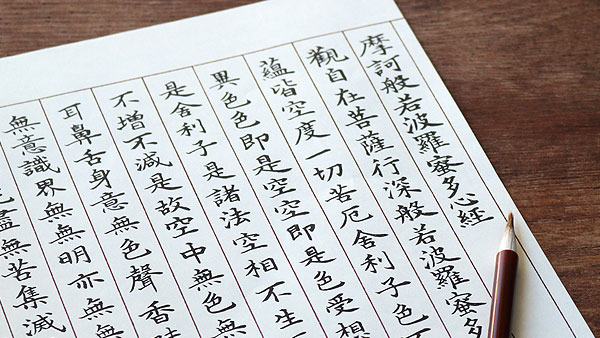 摩訶般若波羅蜜多心經
觀自在菩薩行深般若波羅蜜多
蘊皆空度一切苦厄舍利子色
異色色即是空空即是色受想
是舍利子是諸法空相不生
不增不減是故空中無色無
耳鼻舌身意無色聲香
無意識界無無明亦無無
盡無苦集滅